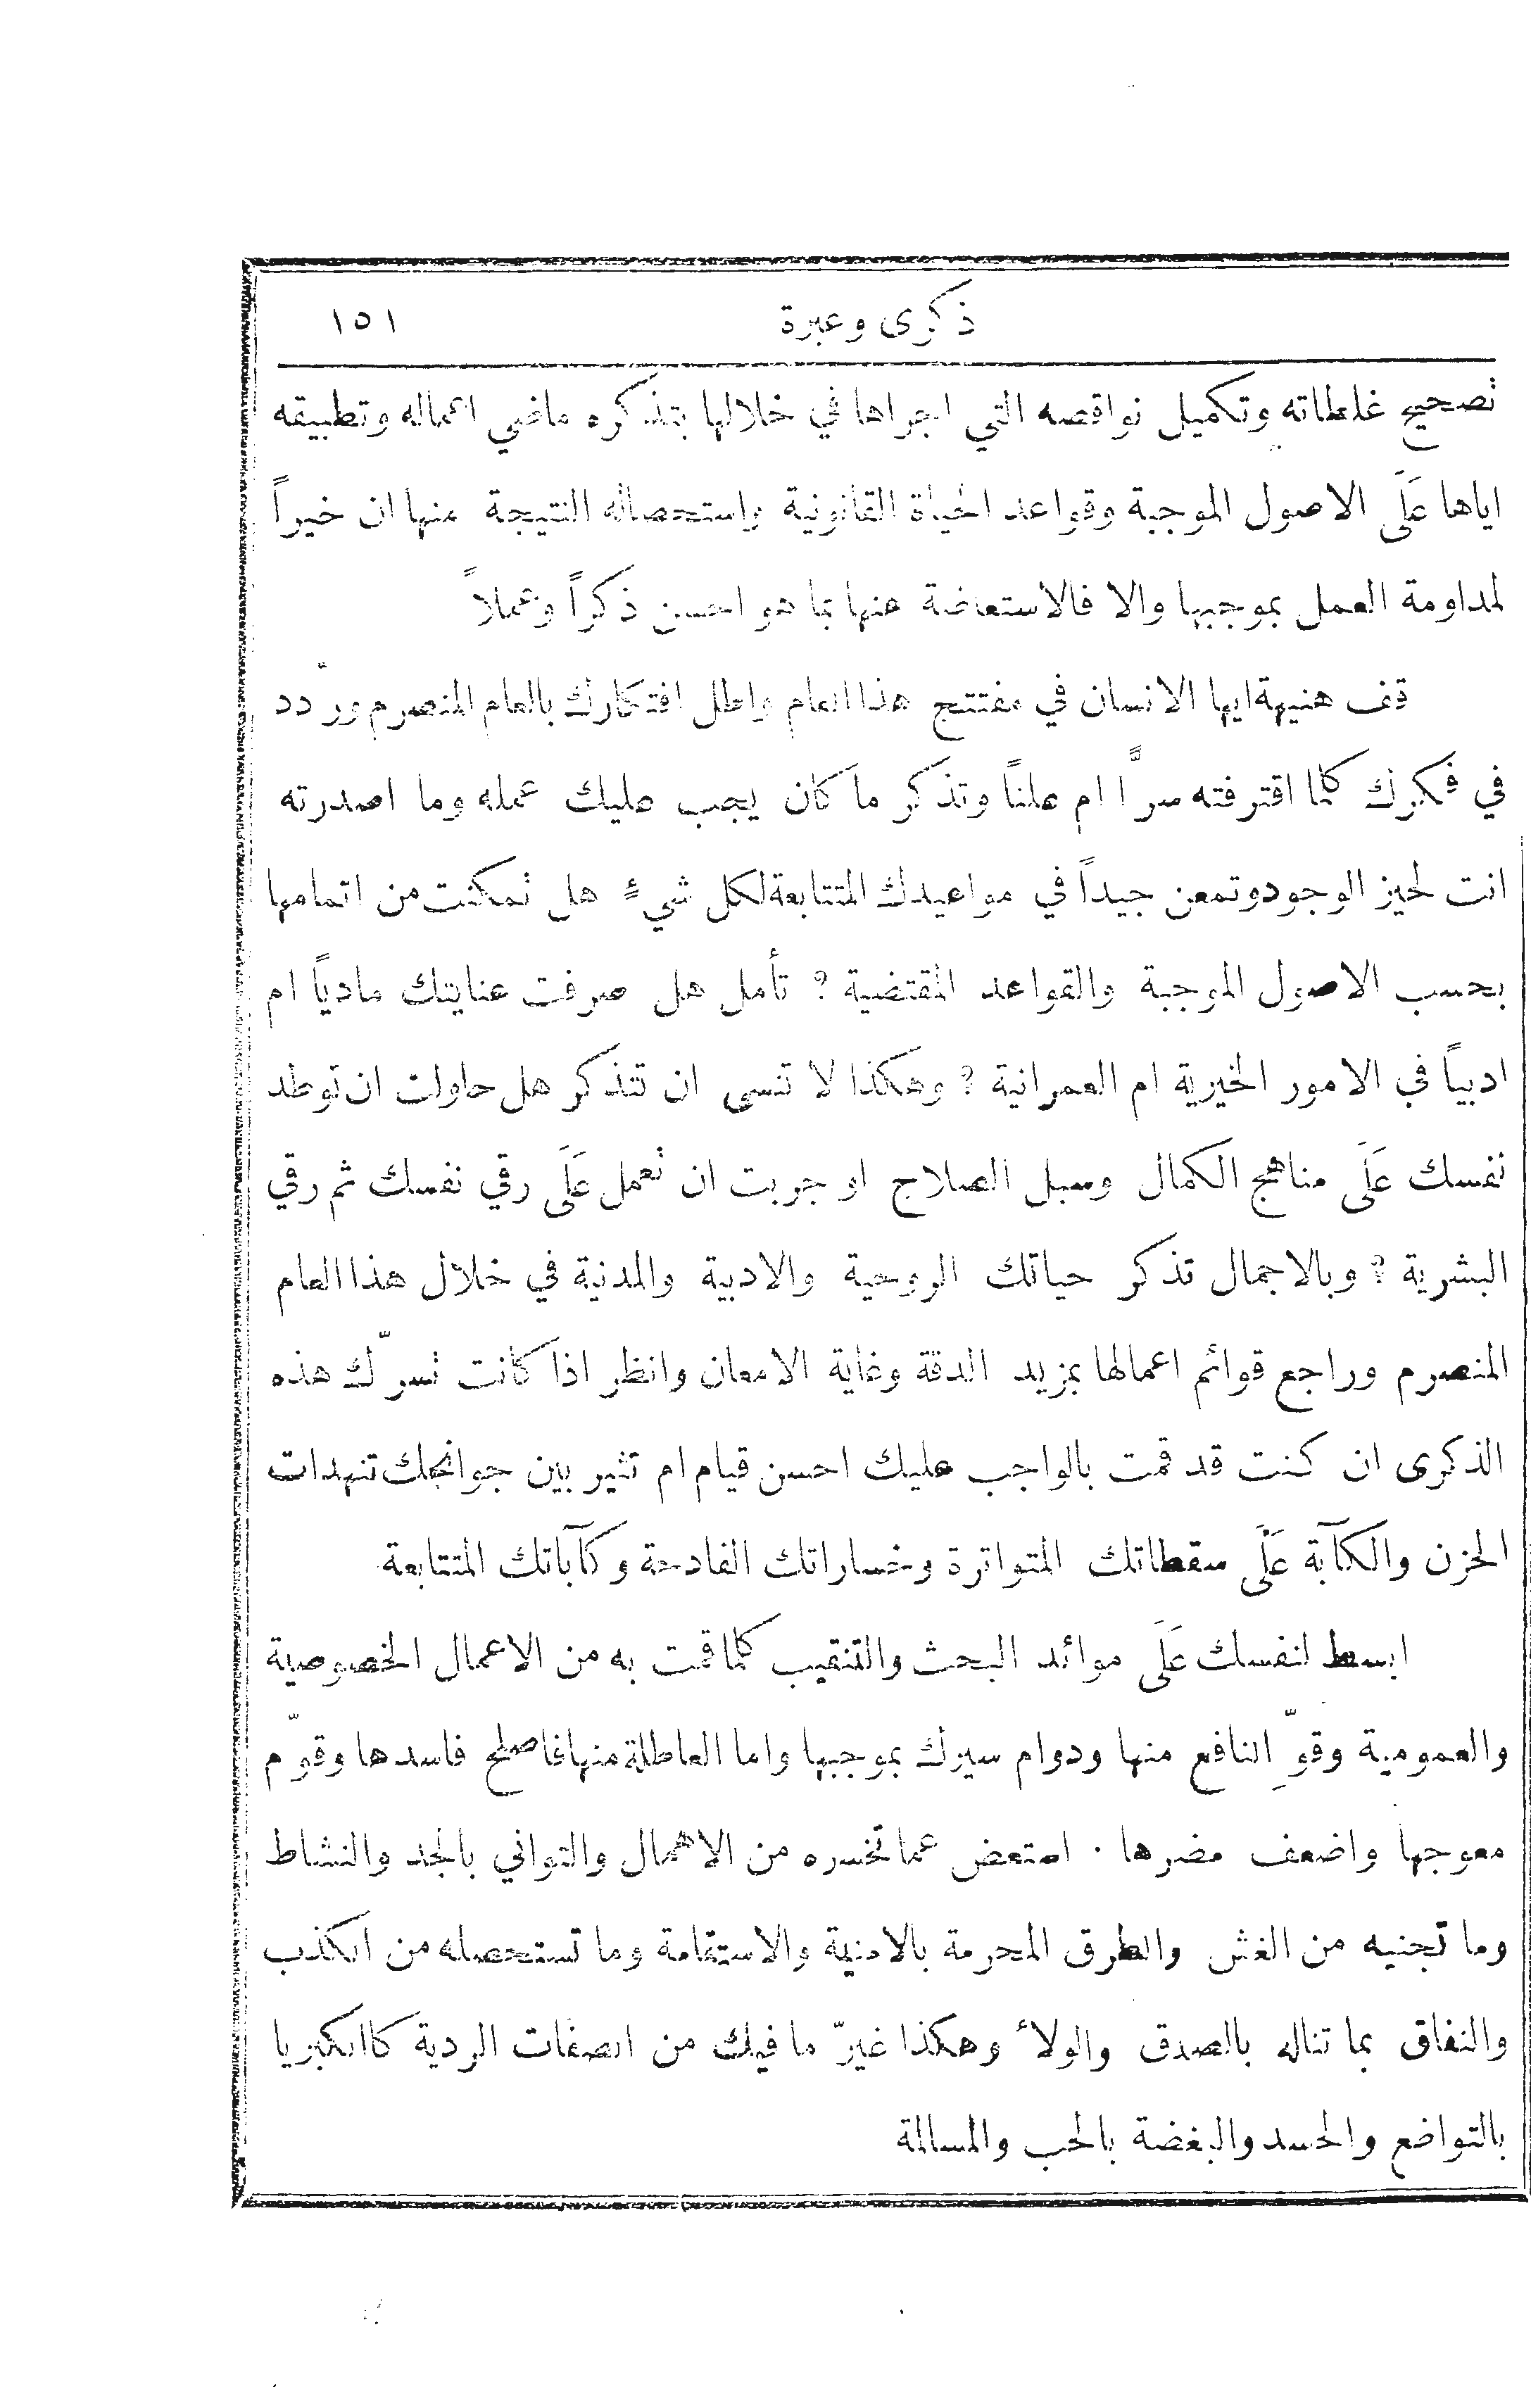 ذكرى وعبرة ١٥١
تصحيح غلطاته وتكميل نواقصه التي اجراها في خلالها بتذكره ماضي اعماله وتطبيقه
اياها عَلَى الاصول الموجبة وقواعد الحياة القانونية واستحصاله النتيجة منها ان خيراً
لمداومة العمل بموجبها والا فالاستعاضة عنها بما هو احسن ذكراً وعملاً
قف هنيهة ايها الانسان في مفتتح هذا العام واطل افتكارك بالعام المنصرم وردّد
في فكرك كلما اقترفته سرًّا ام علناً وتذكر ما كان يجب عليك عمله وما اصدرته
انت لحيز الوجود وتمعن جيداً في مواعيدك المتتابعة لكل شيءٍ هل تمكنت من اتمامها
بحسب الاصول الموجبة والقواعد المقتضية ؟ تأمل هل صرفت عنايتك مادياً ام
ادبياً في الامور الخيرية ام العمرانية ؟ وهكذا لا تنسى ان تتذكر هل حاولت ان توطد
نفسك عَلَى مناهج الكمال وسبل الصلاح او جربت ان تعمل عَلَى رقي نفسك ثم رقي
البشرية ؟ وبالاجمال تذكر حياتك الروحية والادبية والمدنية في خلال هذا العام
المنصرم وراجع قوائم اعمالها بمزيد الدقة وغاية الامعان وانظر اذا كانت تسرّك هذه
الذكرى ان كنت قد قمت بالواجب عليك احسن قيام ام تثير بين جوانحك تنهدات
الحزن والكآبة عَلَى سقطاتك المتواترة وخساراتك الفادحة وكآباتك المتتابعة
ابسط لنفسك عَلَى موائد البحث والتنقيب كلما قمت به من الاعمال الخصوصية
والعمومية وقوِّ النافع منها ودوام سيرك بموجبها واما العاطلة منها فاصلح فاسدها وقوّم
معوجها واضعف مضرها ٠ استعض عما تخسره من الاهمال والتواني بالجد والنشاط
وما تجنيه من الغش والطرق المحرمة بالامنية والاستقامة وما تستحصله من الكذب
والنفاق بما تناله بالصدق والولاء وهكذا غيرّ ما فيك من الصفات الردية كالكبريا
بالتواضع والحسد والبغضة بالحب والمسالمة